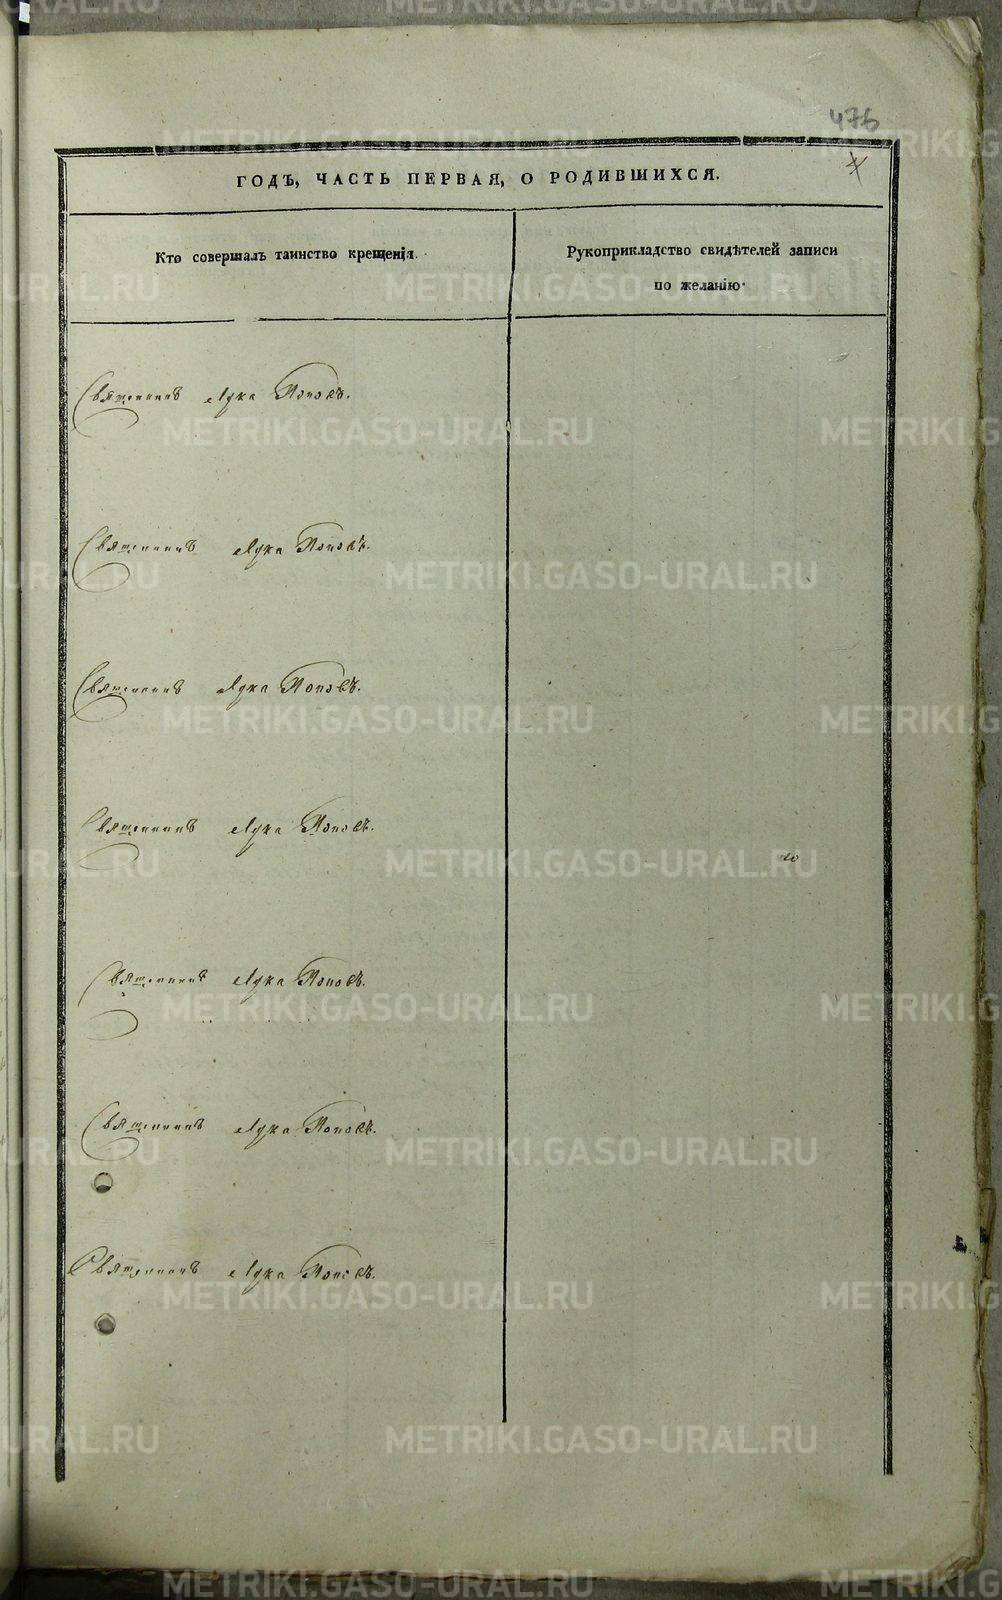 475
4
ГОДЪ, ЧАСТЬ ПЕРВАЯ, О РОДИВШИХСЯ.
Кто совершалъ таинство крещенія.
Рукоприкладство свидѣтелей записи
по желанію.
Священникъ Лука Поповъ.
Священникъ Лука Поповъ.
Священникъ Лука Поповъ.
Священникъ Лука Поповъ.
Священникъ Лука Поповъ.
Священникъ Лука Поповъ.
Священникъ Лука Поповъ.
METRIKI.GASO-URAL.RU